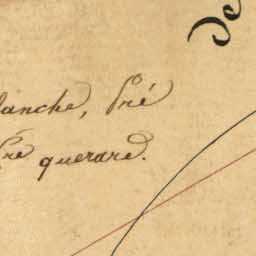 lanche, Pré
Pré querard.
de